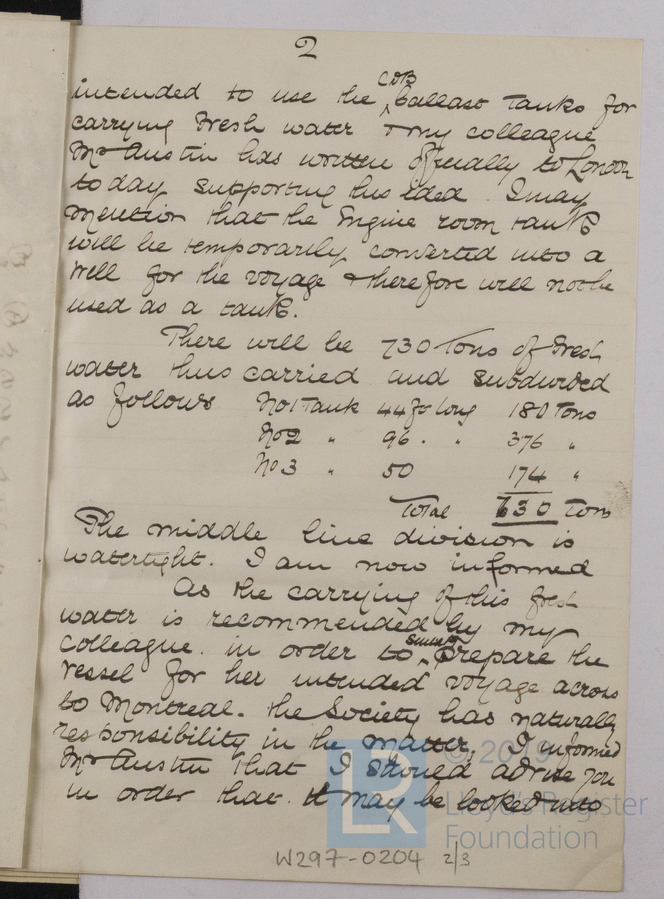 2
intended to use the CDB ballast tanks for
carrying Fresh water & my colleague
Mr Austin has written officially to London
today supporting this idea. I may
mention that the Engine room tank
will be temporarily converted into a
well for the voyage & therefore will not be
used as a tank.
There will be 730 Tons of Fresh
water thus carried and subdivided
as follows No 1 Tank 44 ft long 180 Tons
No 2 " 96 . " 376 "
No 3 " 50 174 "
Total 630 Tons
The middle line division is
watertight. I am now informed
As the carrying of this fresh
water is recommended by my
colleague. in order to prepare the
vessel for her intended voyage across
to Montreal. the Society has naturally
responsibility in the matter. I informed
Mr Austin that I should advise you
in order that. it may be looked into
© 2019
LR
Lloyd's Register
Foundation
W297-0204 2/3